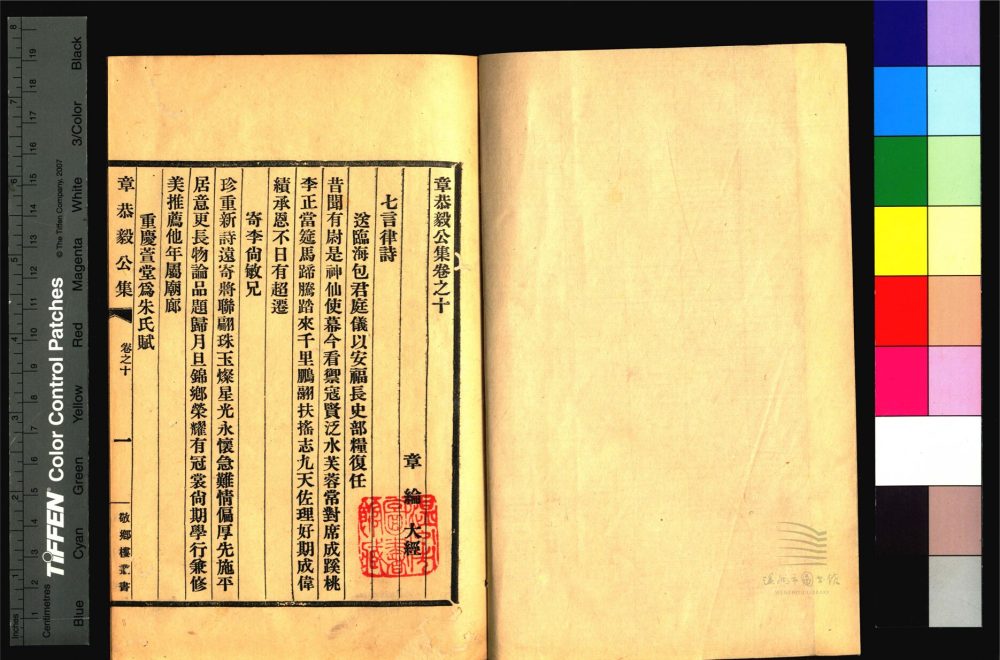 章恭毅公集卷之十
章綸大經
七言律詩
送臨海包君庭儀以安福長史部糧復任
昔聞有尉是神仙使幕今看禦寇賢泛水芙蓉常對席成蹊桃
李正當筵馬蹄騰踏來千里鵬翮扶搖志九天佐理好期成偉
績承恩不日有超遷
寄李尙敏兄
珍重新詩遠寄將聯翩珠玉燦星光永懷急難情偏厚先施平
居意更長物論品題歸月旦錦鄉榮耀有冠裳尙期學行兼修
美推薦他年屬廟廊
重慶萱堂爲朱氏賦
章恭毅公集
卷之十
一
敬鄉樓叢書
Inches
Centimetres
TIFFEN® Color Control Patches
© The Tiffen Company, 2007
Blue
Cyan
Green
Yellow
Red
Magenta
White
3/Color
Black
WENZHOU LIBRARY